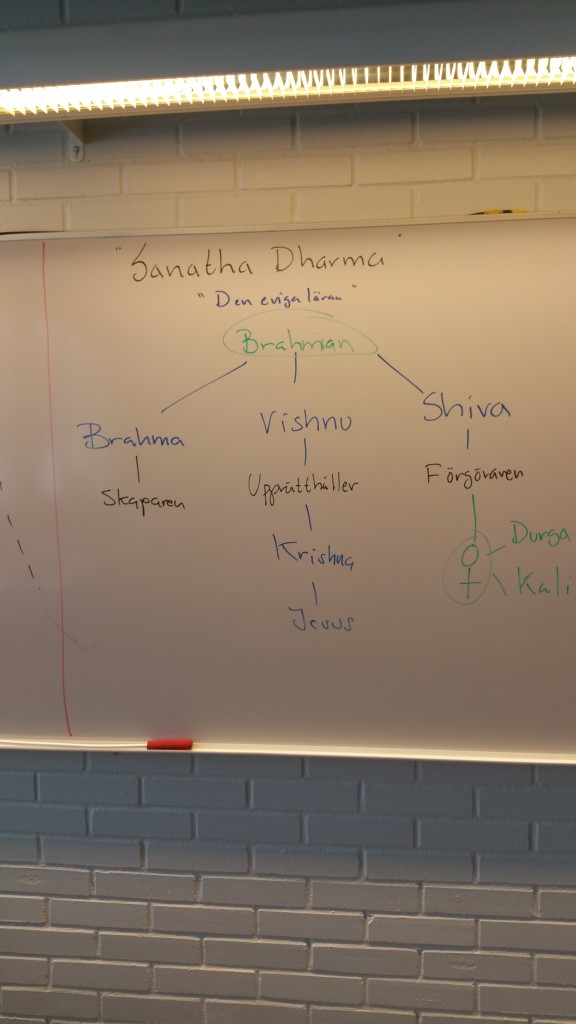 "Sanatha Dharma"
"Den eviga läran"
Brahman
Brahma
Vishnu
Shiva
Skaparen
Upprätthåller
Förgöraren
Krishna
Jesus
Durga
Kali